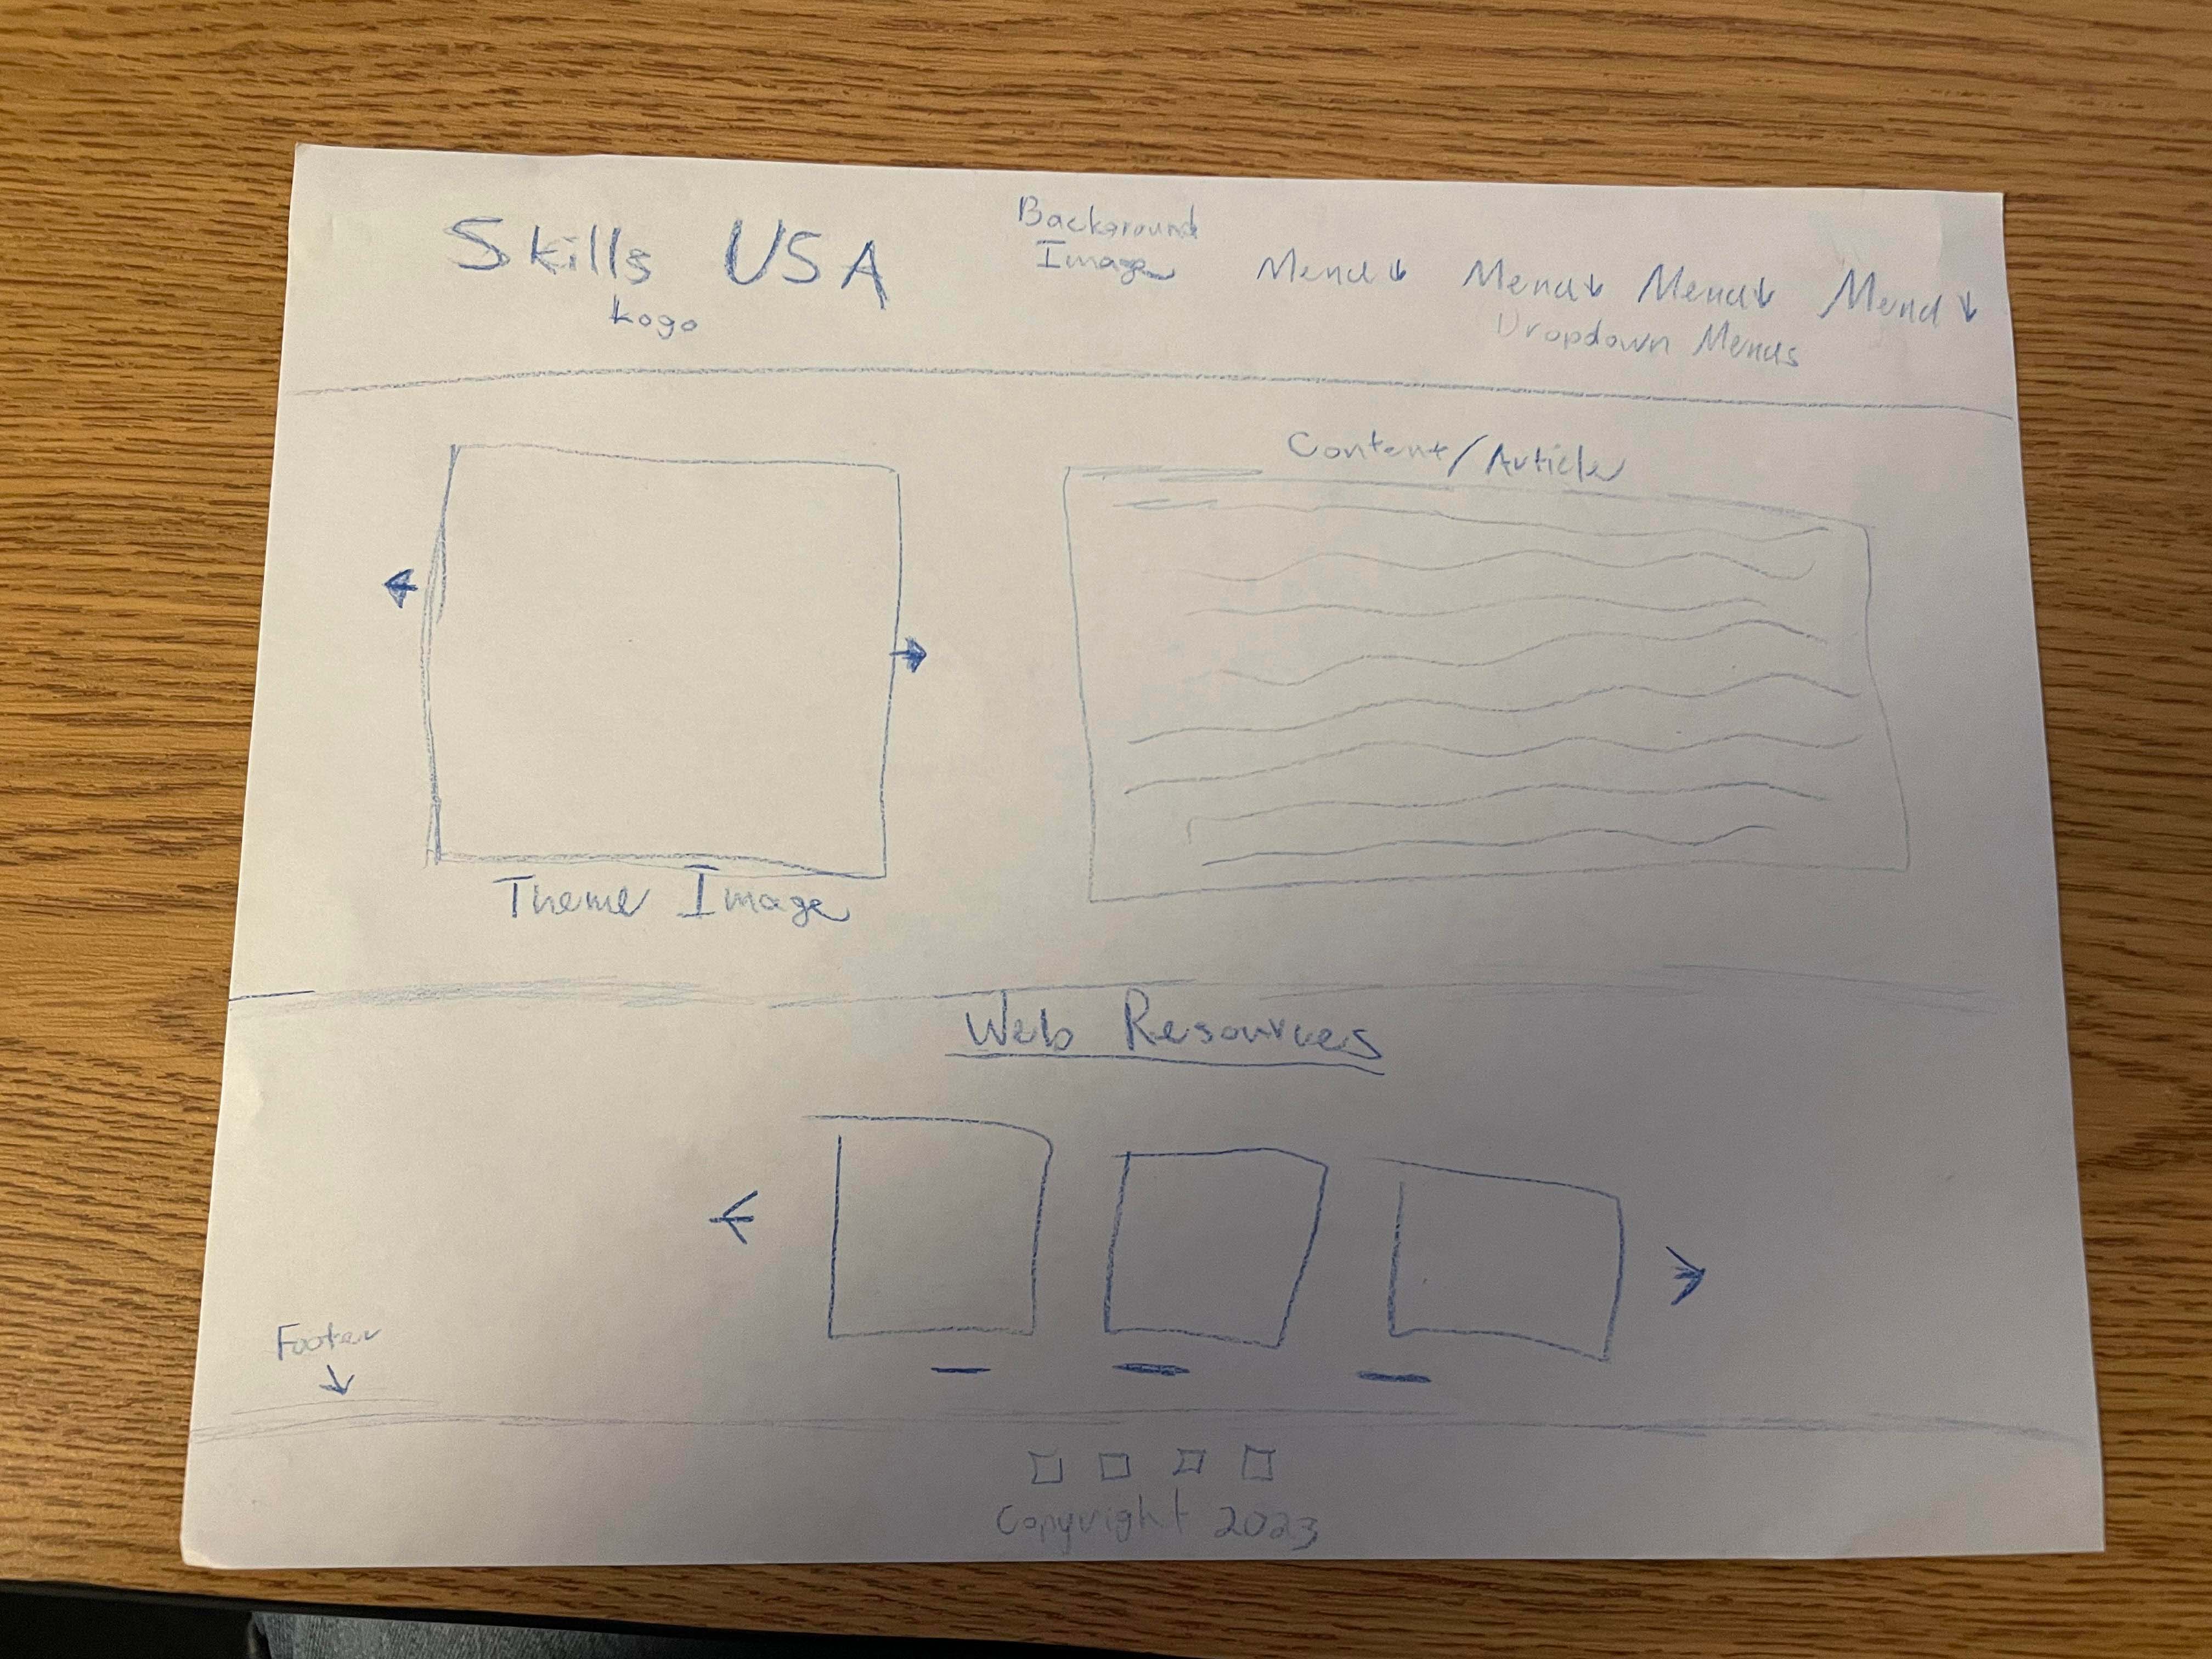 Skills USA
Logo
Background
Image
Menu Menu Menu Menu
Dropdown Menus
Content/Article
Theme Image
Web Resources
Footer
Copyright 2023